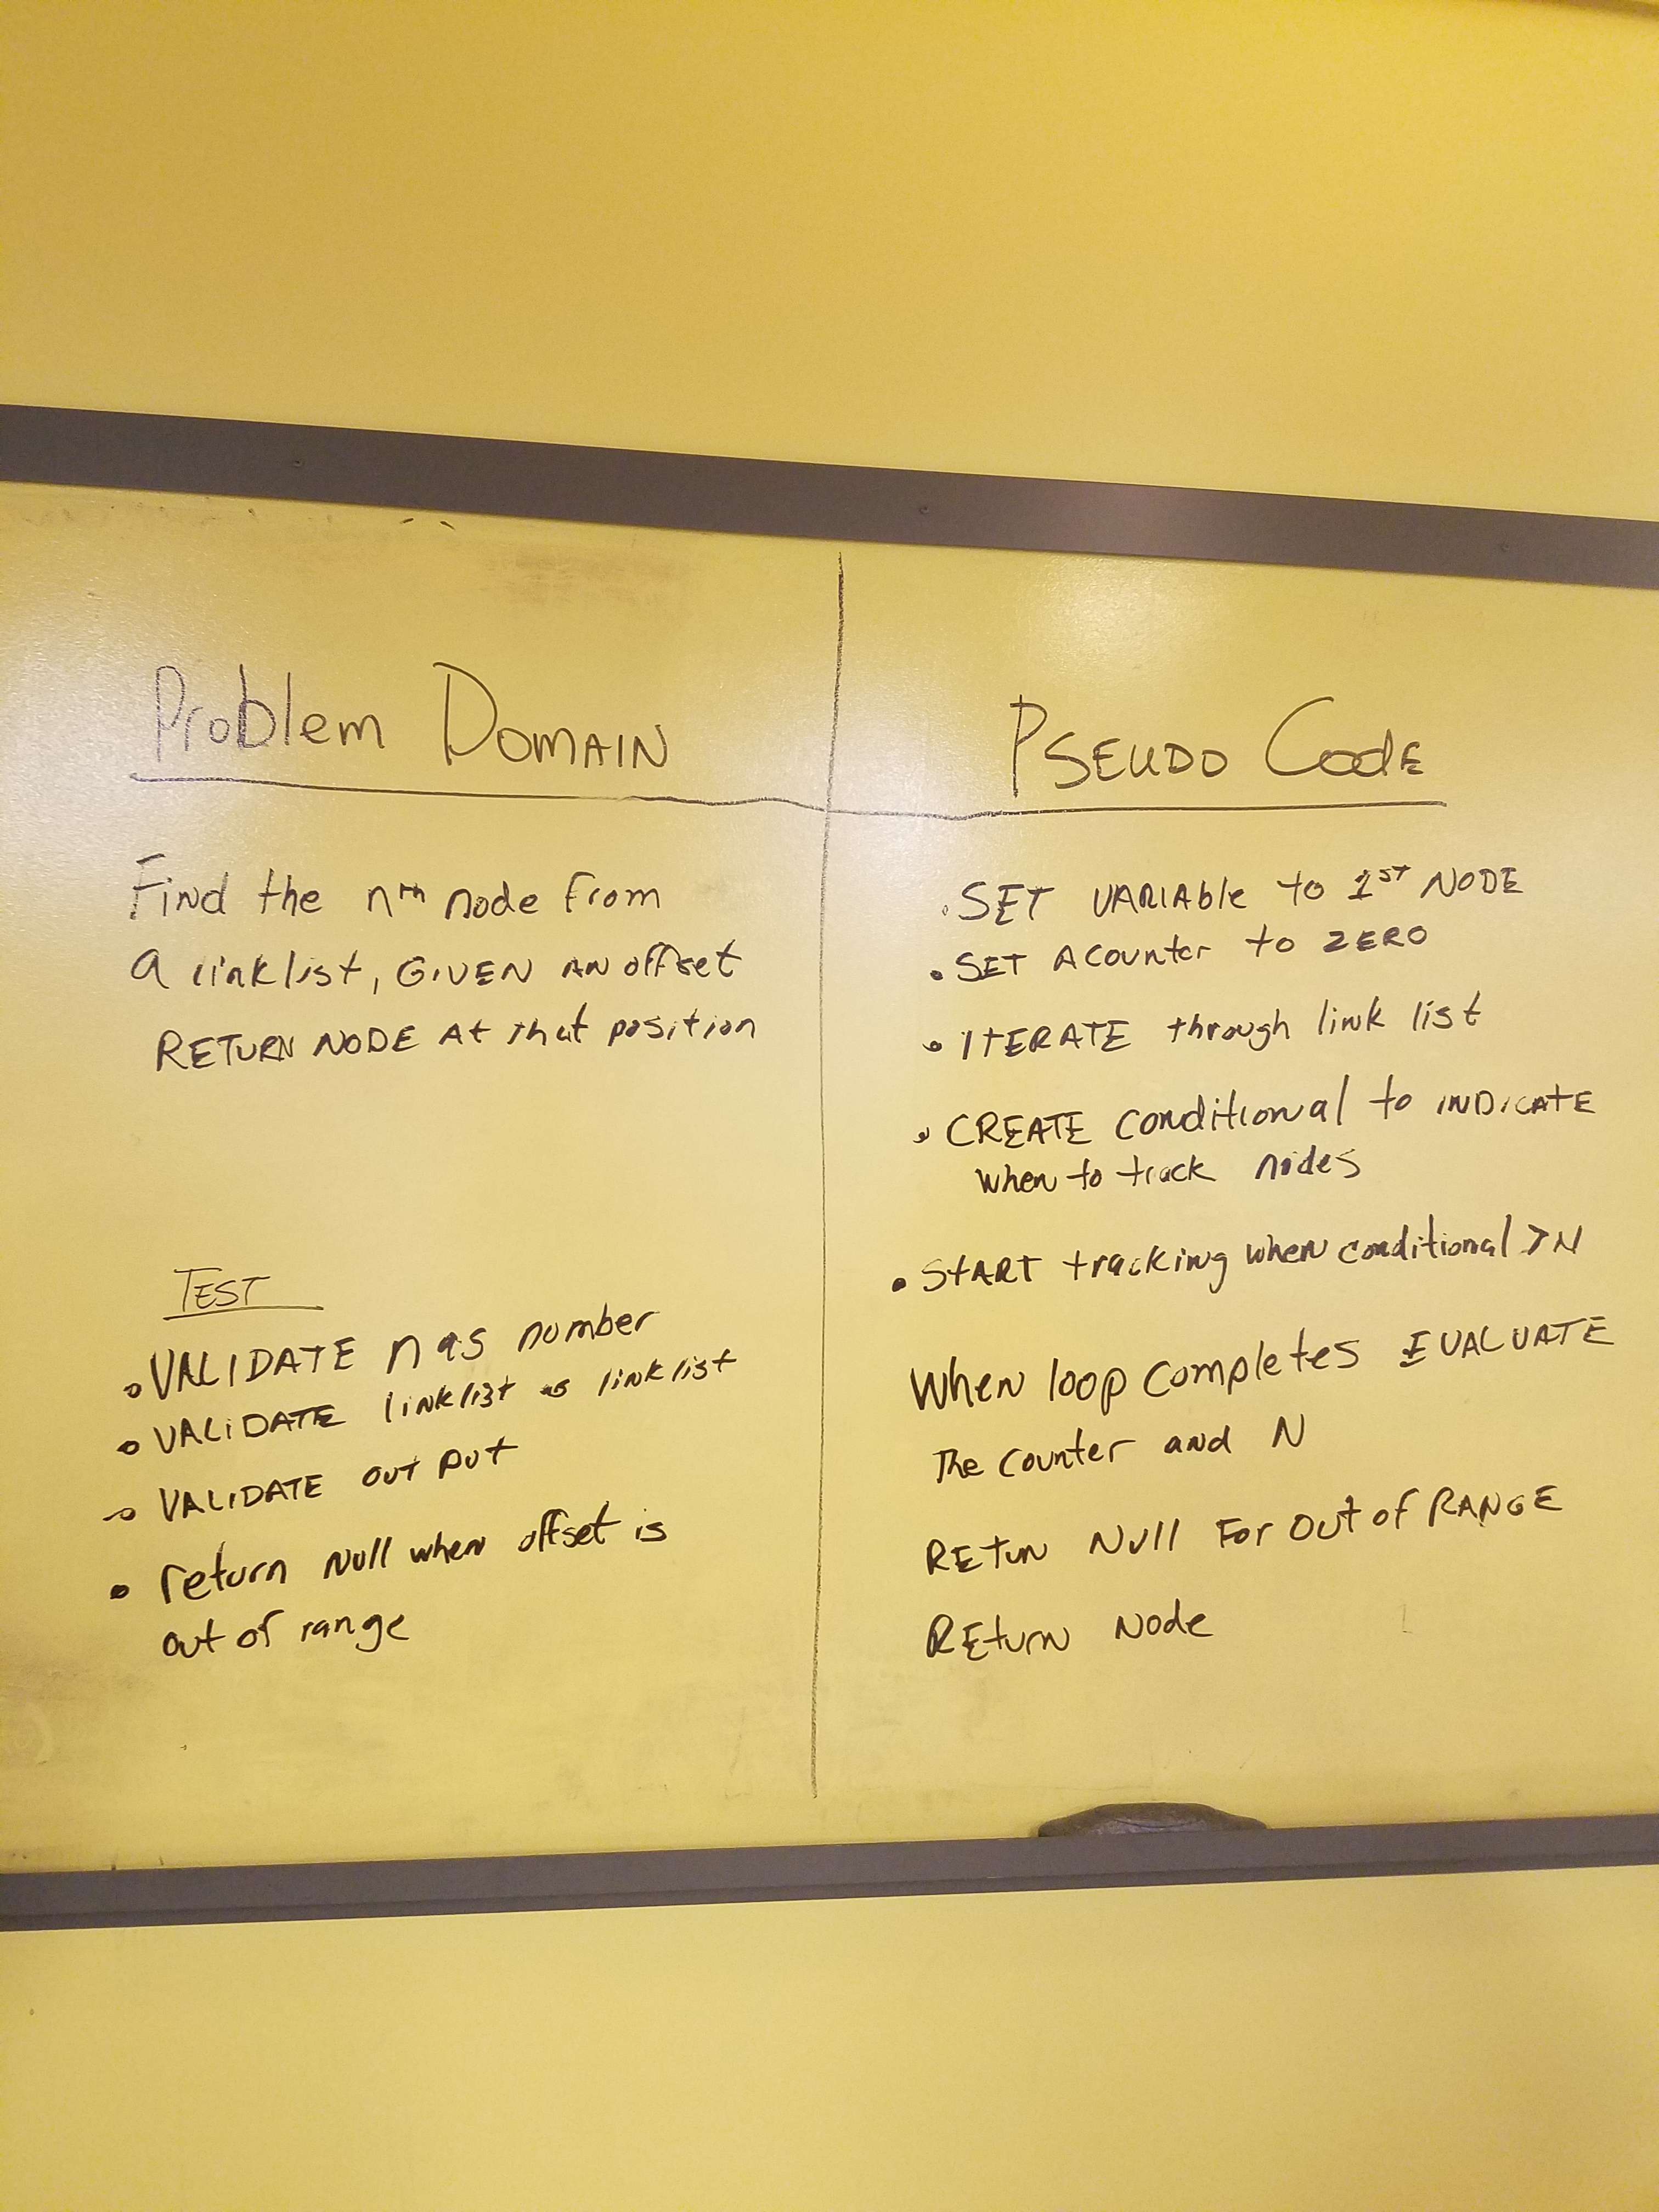 Problem Domain
Find the nth node from
a linklist, GIVEN AN offset
RETURN NODE At that position
TEST
• VALIDATE n as number
• VALIDATE linklist as linklist
• VALIDATE out put
• return Null when offset is
out of range
PSEUDO Code
• SET VARIAble to 1st NODE
• SET A Counter to ZERO
• ITERATE through link list
• CREATE conditional to INDICATE
when to track nodes
• START tracking when conditional > N
When loop completes EVALUATE
The counter and N
RETUN Null For Out of RANGE
REturn Node